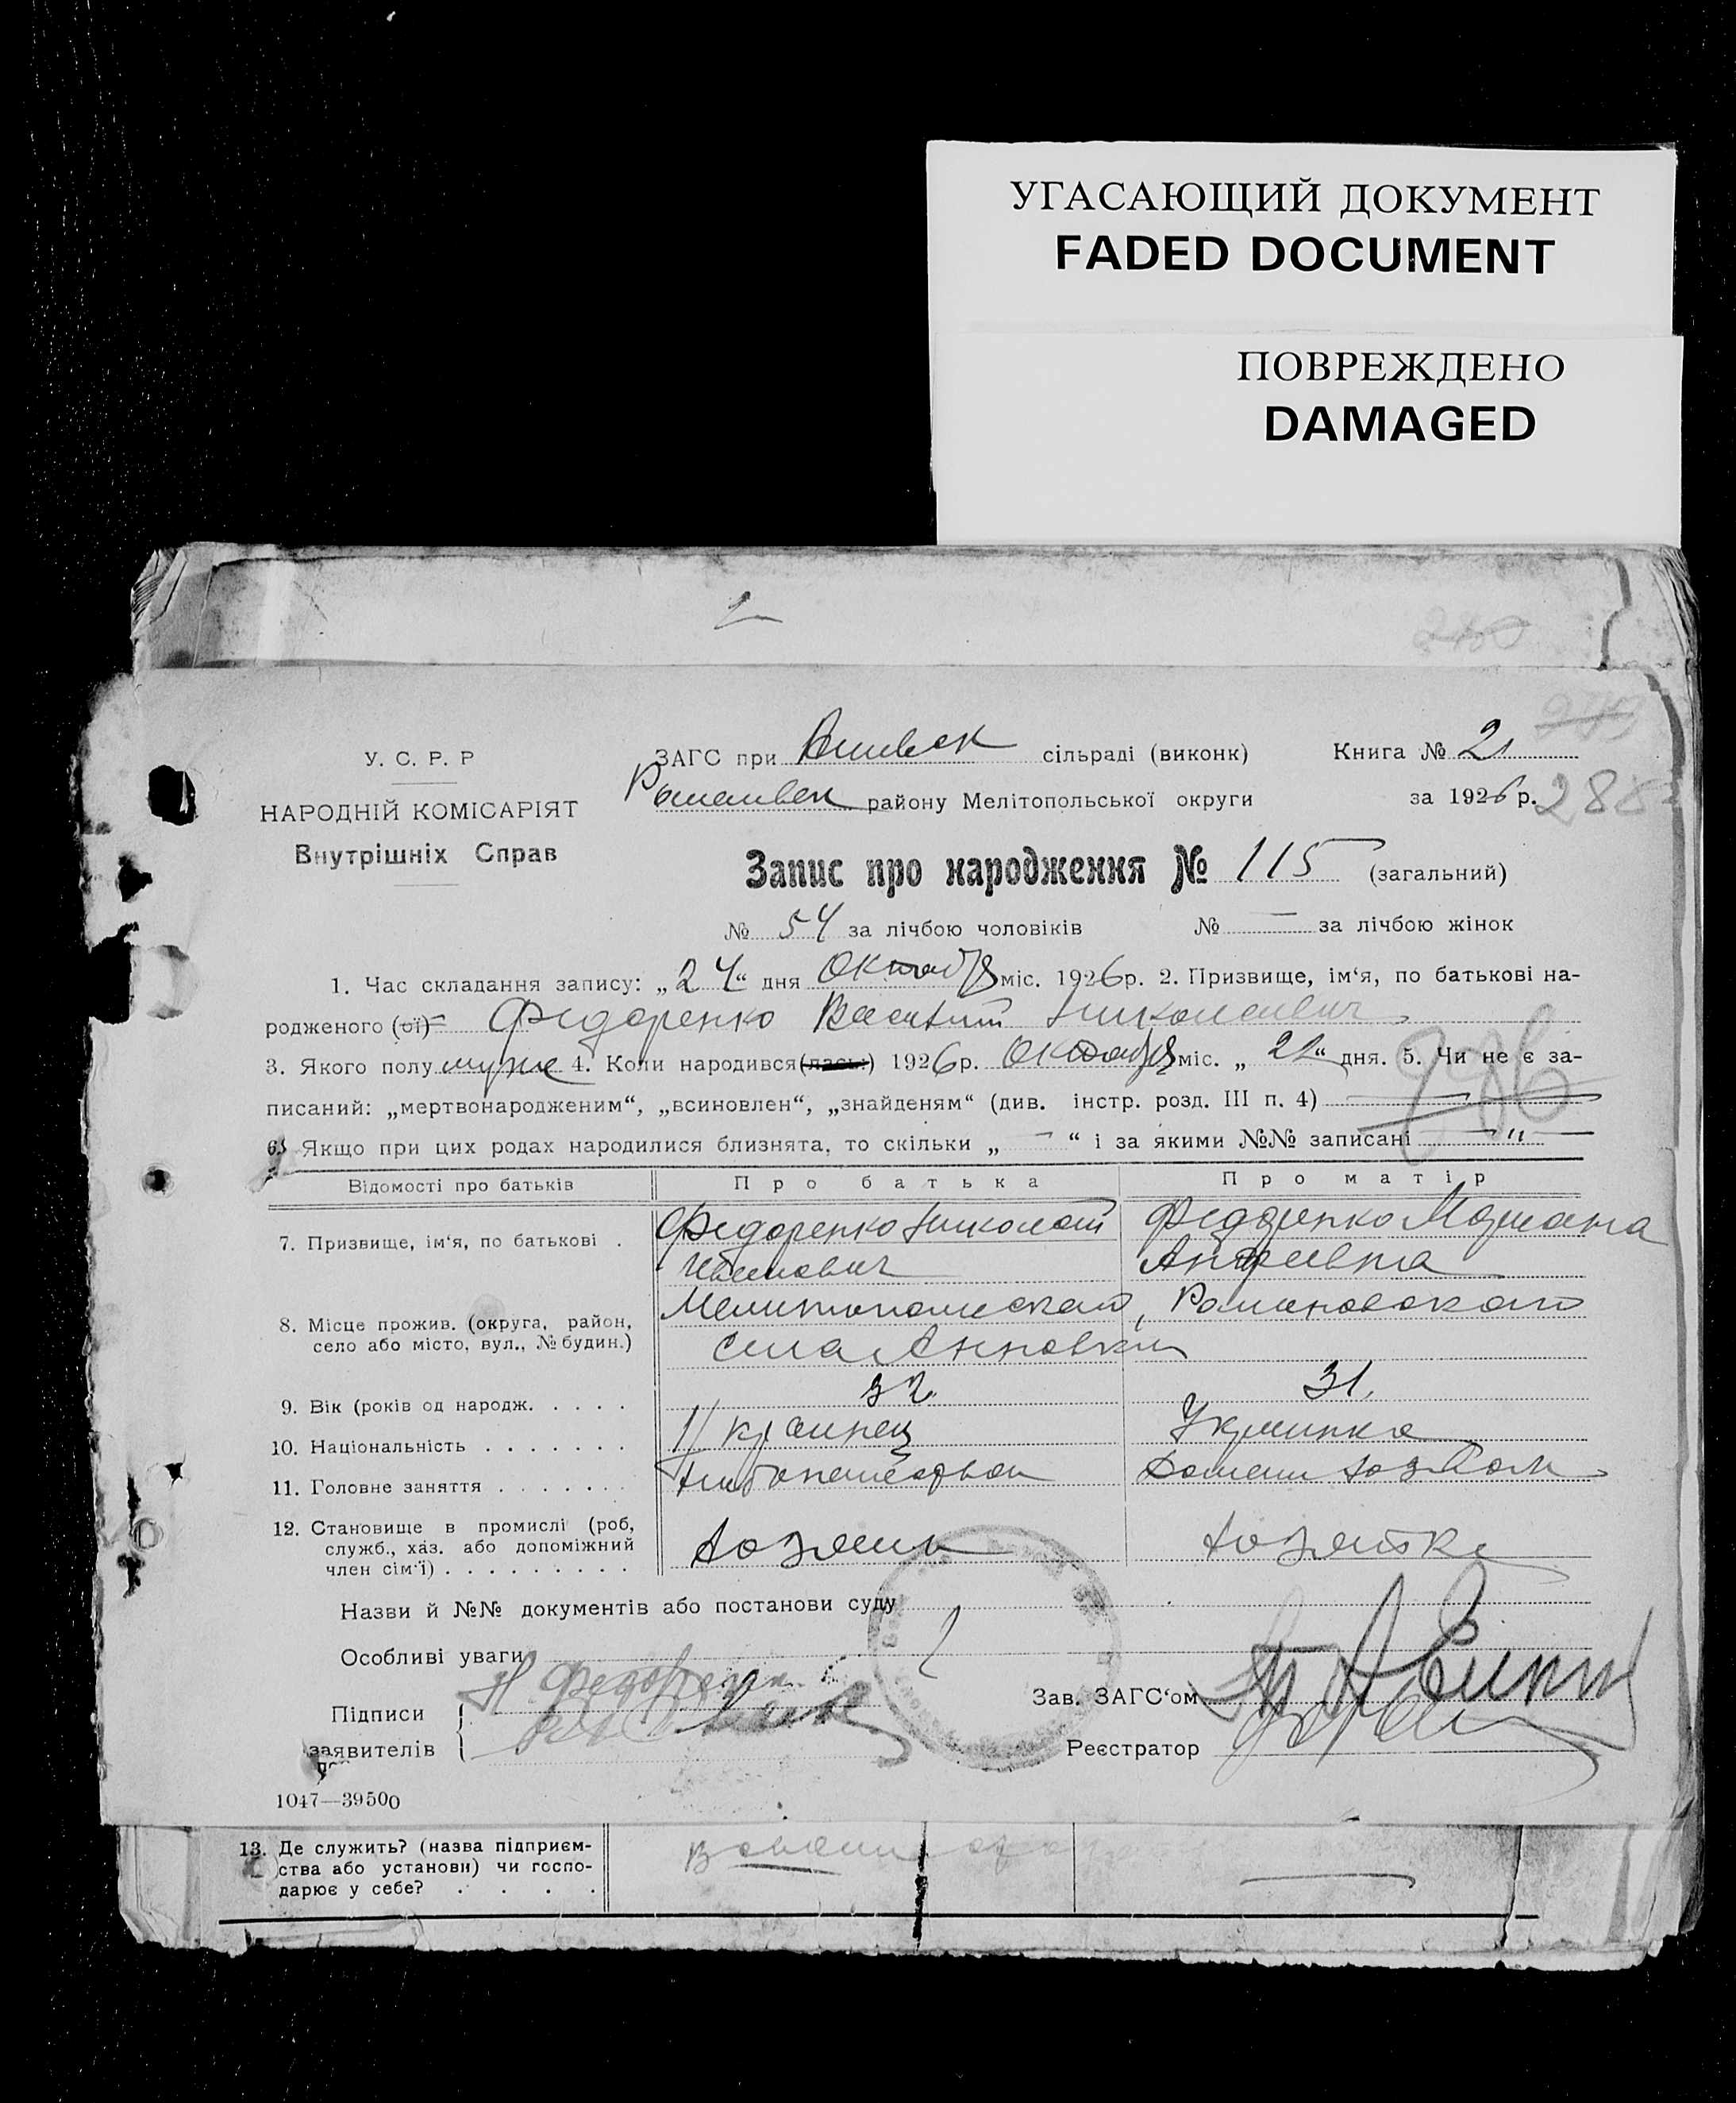 УГАСАЮЩИЙ ДОКУМЕНТ
FADED DOCUMENT
ПОВРЕЖДЕНО
DAMAGED
У. С. Р. Р
НАРОДНІЙ КОМІСАРІЯТ
Внутрішніх Справ
ЗАГС при сільраді (виконк)
Книга № 21
району Мелітопольської округи
за 1926 р.
Запис про народження № 115 (загальний)
№ 54 за лічбою чоловіків № — за лічбою жінок
1. Час складання запису: „24“ дня Октября міс. 1926 р. 2. Призвище, ім‘я, по батькові на-
родженого (ої) Федоренко Василий Николаевич
3. Якого полу муже 4. Коли народився (лась) 1926 р. Октября міс. „21“ дня. 5. Чи не є за-
писаний: „мертвонародженим“, „всиновлен“, „знайденям“ (див. інстр. розд. III п. 4) —
6. Якщо при цих родах народилися близнята, то скільки „ — “ і за якими №№ записані — „ —
Відомості про батьків Про батька Про матір
7. Призвище, ім‘я, по батькові . Федоренко Николай Федоренко Мариана
Иванович
8. Місце прожив. (округа, район, Мелитопольской, Романовского
село або місто, вул., № будин.) села Анновки
9. Вік (років од народж. . . . . 32. 31.
10. Національність . . . . . . . Украинец Украинка
11. Головне заняття . . . . . . .
12. Становище в промислі (роб, Хозяин Хозяйка
служб., хаз. або допоміжний
член сім‘ї) . . . . . . . . .
Назви й №№ документів або постанови суду
Особливі уваги
Підписи Н Федоренко
заявителів
Зав. ЗАГС‘ом
Реєстратор
1047—39500
13. Де служить? (назва підприєм-
ства або установи) чи госпо-
дарює у себе? . . . .